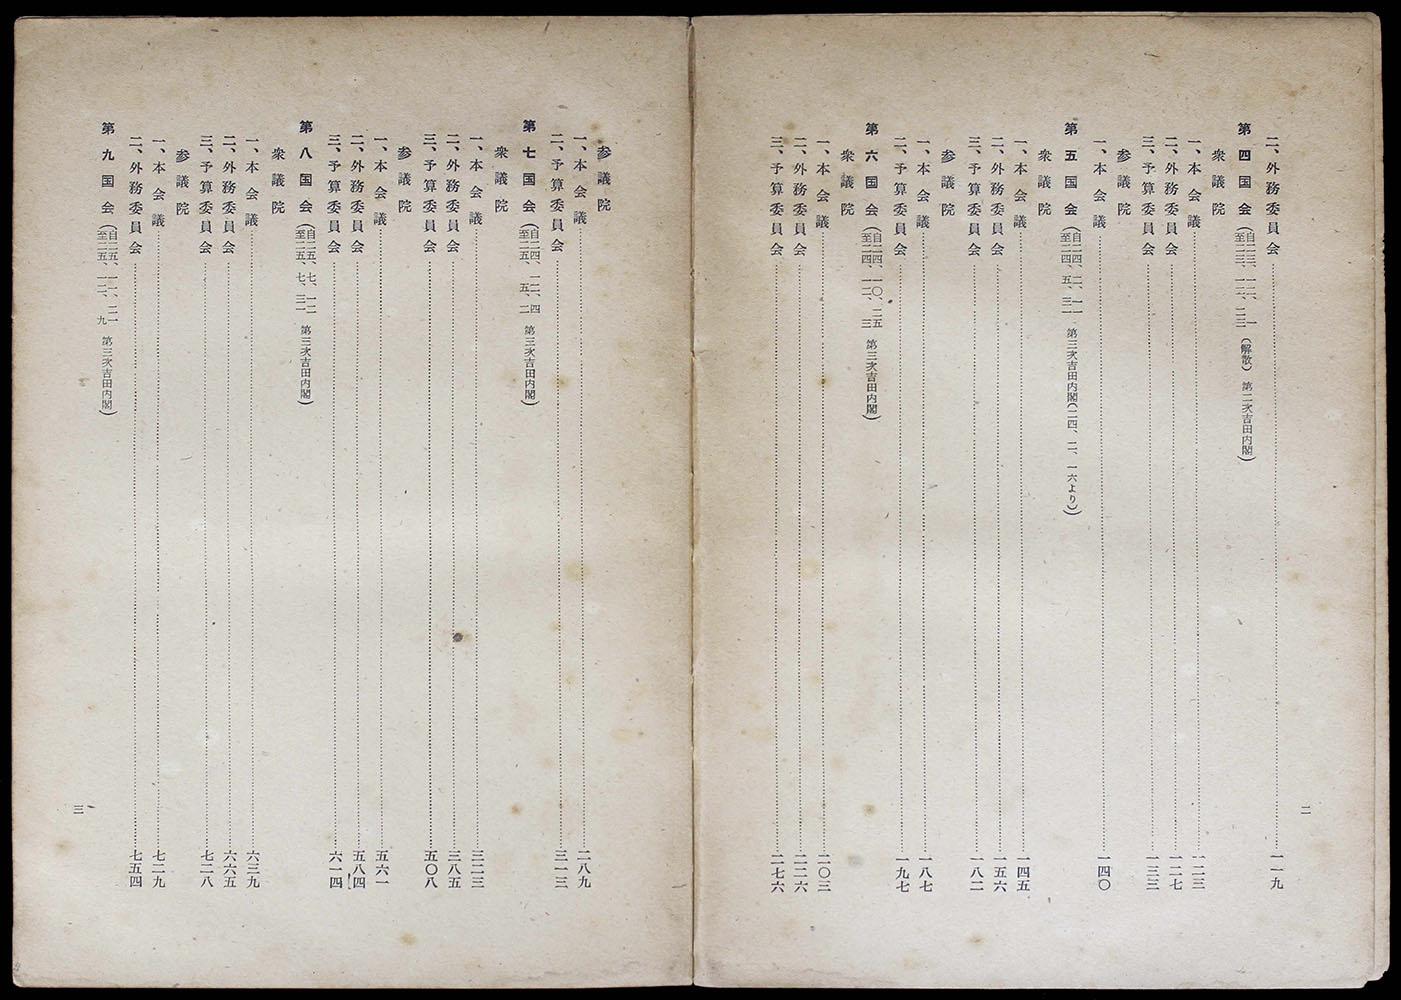 二、外務委員会 一一九
第四国会（自二三、一二、一 至二三、一二、二三（解散） 第二次吉田内閣）
衆議院
一、本会議 一二三
二、外務委員会 一二七
三、予算委員会 一三三
参議院
一、本会議 一四〇
第五国会（自二四、二、一一 至二四、五、三一 第三次吉田内閣（二四、二、一六より））
衆議院
一、本会議 一四五
二、外務委員会 一五六
三、予算委員会 一八二
参議院
一、本会議 一八七
二、予算委員会 一九七
第六国会（自二四、一〇、二五 至二四、一二、三 第三次吉田内閣）
衆議院
一、本会議 二〇三
二、外務委員会 二二六
三、予算委員会 二七六
二
参議院
一、本会議 二八九
二、予算委員会 三一三
第七国会（自二四、一二、四 至二五、五、二 第三次吉田内閣）
衆議院
一、本会議 三二三
二、外務委員会 三八五
三、予算委員会 五〇八
参議院
一、本会議 五六一
二、外務委員会 五八四
三、予算委員会 六一四
第八国会（自二五、七、一二 至二五、七、三一 第三次吉田内閣）
衆議院
一、本会議 六三九
二、外務委員会 六六五
三、予算委員会 七一八
参議院
一、本会議 七二九
二、外務委員会 七五四
第九国会（自二五、一一、二一 至二五、一二、九 第三次吉田内閣）
三